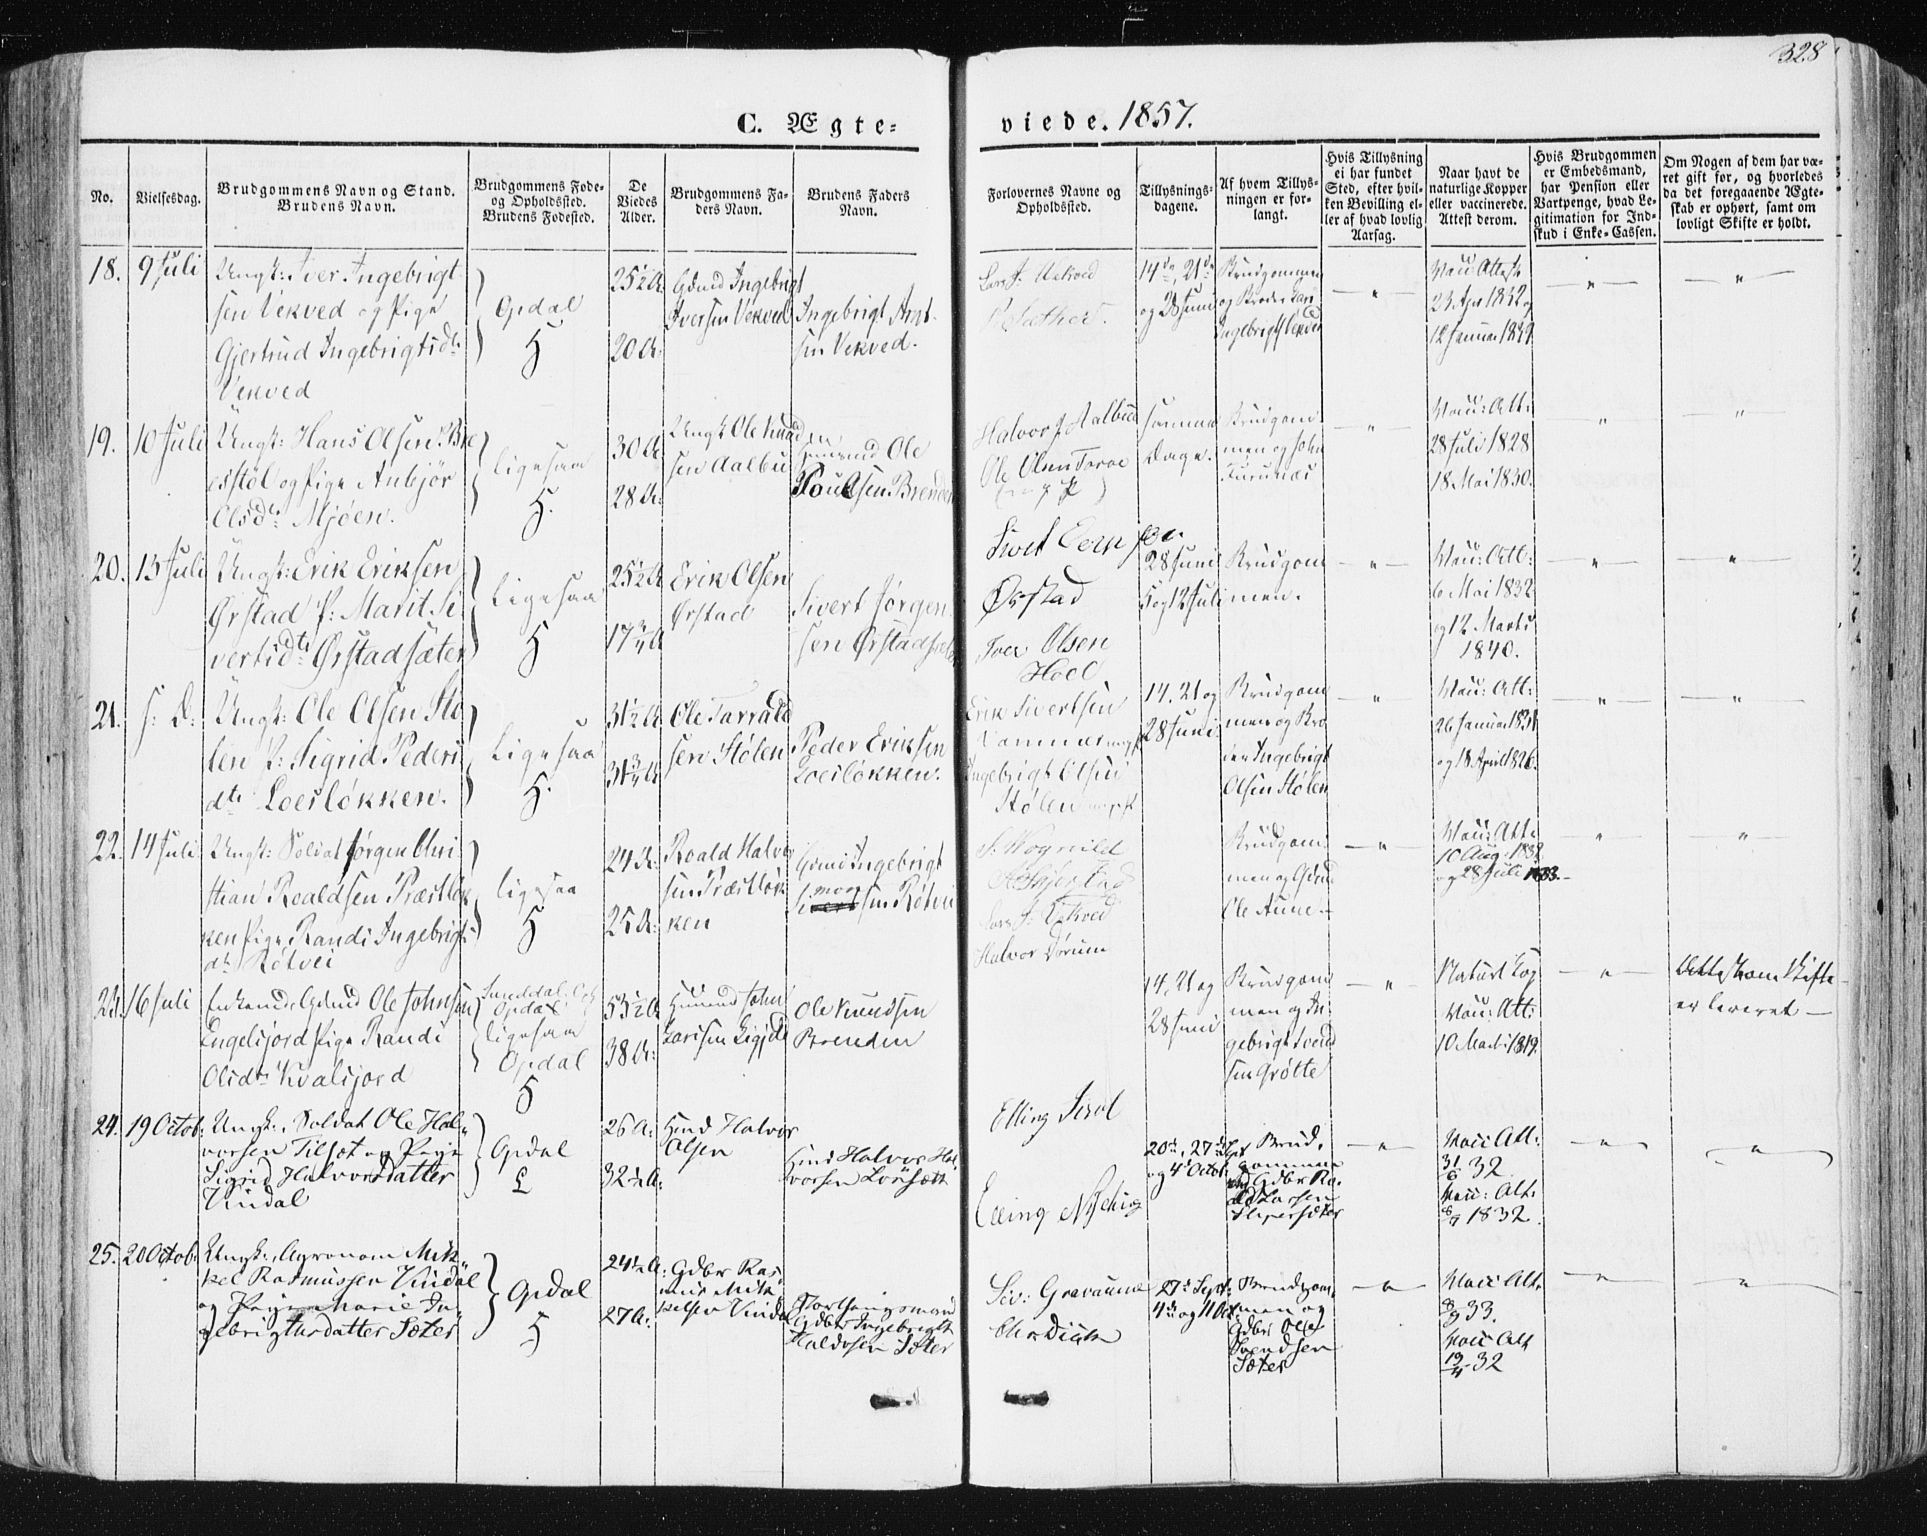 328
C. Ægte-
viede. 1857.
No.
Vielsesdag.
Brudgommens Navn og Stand.
Brudens Navn.
Brudgommens Føde-
og Opholdssted.
Brudens Fødested.
De
Viedes
Alder.
Brudgommens Fa-
ders Navn.
Brudens Faders
Navn.
Forlovernes Navne og
Opholdssted.
Tillysnings-
dagene.
Af hvem Tillys-
ningen er for-
langt.
Hvis Tillysning
ei har fundet
Sted, efter hvil-
ken Bevilling el-
ler af hvad lovlig
Aarsag.
Naar havt de
naturlige Kopper
eller vaccinerede.
Attest derom.
Hvis Brudgommen
er Embedsmand,
har Pension eller
Vartpenge, hvad Le-
gitimation for Ind-
skud i Enke-Cassen.
Om Nogen af dem har væ-
ret gift før, og hvorledes
da det foregaaende Ægte-
skab er ophørt, samt om
lovligt Skifte er holdt.
18. 9 Juli
Ungk: Iver Ingebrigt
sen Vekved og Pige
Gjertrud Ingebrigtsdtr
Vekved
Opdal
H
25½ A.
20 A.
Gdmd Ingebrigt
Iversen Vekved
Ingebrigt Arnt
sen Vekved.
Lars J. Vekved
14de, 21de
og 28 Juni
Brudgommen
og Broder Lars
Ingebrigts Vekved
Vacc: Attest
23 Apr 1832 og
12 Januar 1849
19. 10 Juli
Ungk: Hans Olsen
og Pige Anbjør
Olsdtr Mjøen.
ligesaa
H.
30 A.
28 A.
Ungk Ole Knud
sen Aalbu
Ole
Poulsen Brenden
Halvor J. Aalbu
Ole Olsen
samme
Dage.
Brudgom
men og John
Furunæs
Vacc: Att:
28 Juli 1828
18 Mai 1830.
20. 13 Juli
Ungk: Erik Eriksen
Ørstad P: Marit Si
vertsdtr Ørstadsæter
ligesaa
H
25½ A
17¾ A
Erik Olsen
Ørstad
Sivert Jørgen
sen Ørstadsæter
Ørstad
Iver Olsen
Hoel
28 Juni
5 og 12 Juli
Brudgom
men.
Vacc: Att:
6 Mai 1832
og 12 Marts
1840.
21. s: D:
Ungk: Ole Olsen Stø
len P: Sigrid Peders
dtr Loesløkken.
ligesaa
H.
31½ A
31¾ A
Ole Tarrald
sen Stølen
Peder Eriksen
Loesløkken.
Erik Sivertsen
Ingebrigt Olsen
Stølen
14. 21 og
28 Juni
Brudgom
men og Bro
der Ingebrigt
Olsen Stølen
Vacc: Att:
26 Januar 1831
og 18 April 1826.
22. 14 Juli
Ungk: Soldat Jørgen Chri
stian Roaldsen Præstløk
ken Pige Randi Ingebrigts
dtr Røtvei
ligesaa
H
24 A:
25 A:
Roald Halv
sen Præstløk
ken
Gdmd Ingebrigt
Simon
sen Røtvei
Lars J: Vekved
Halvor Dørum
Brudgom
men og Gdmd
Ole Aune
Vacc: Att:
10 Aug: 1832
og 28 Juli 1833.
23. 16 Juli
Enkemd Gdmd Ole Johnsen
Engelsjord Pige Randi
Olsdtr Kvalsjord
Sunddal
Opdal
ligesaa
Opdal
H
53½ A
38 A:
Huusmd John
Larsen
Ole Knudsen
Brenden
14, 21 og
28 Juni
Brudgom
men og In
gebrigt Svend
sen Grøtte
Naturl Kop
Vacc: Att:
10 Marts 1819.
Attest om Skifte
er leveret
24. 19 Octob:
Ungk: Soldat Ole Hal
vorsen Tilset og Pige
Sigrid Halvorsdatter
Vindal
Opdal
L
26 A:
32½ A:
Hmd Halvor
Olsen
Hmd Halvor Hal
vorsen Lønset
20de, 27de Sept
og 4de Octob:
Brud,
gommen
og Gdbr Ro
ald Larsen
Slipersæter
Vacc Att:
32
Vacc: Att:
1832
25. 20 Octob.
Ungk: Agronom Mik
kel Rasmussen Vindal
og Pige Marie In
gebrigtsdatter Sæter
Opdal
H
24½ A:
27 A:
Gdbr Ras
mus Mik
kelsen Vindal
Storthingsmand
Gdbr Ingebrigt
Haldosen Sæter
27de Sept:
4de og 11 Oct
Brudgom,
men og
Gdbr Ole
Svendsen
Sæter
Vacc Att.
33.
Vacc Att
32